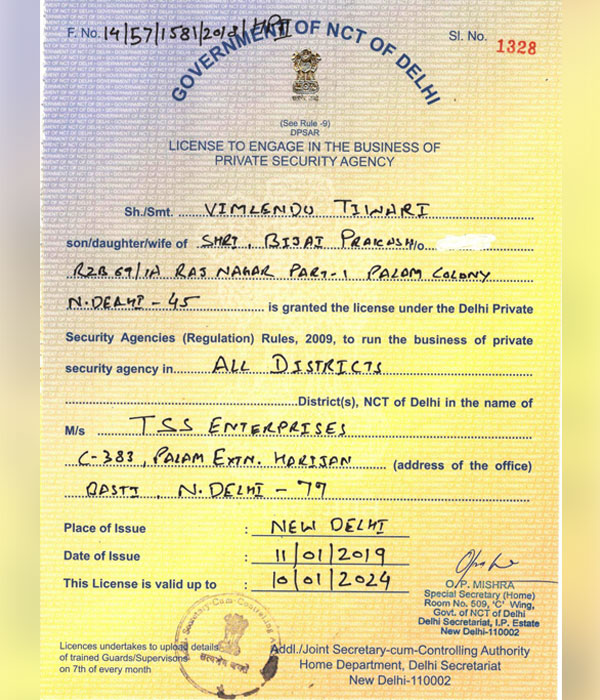 F. No. 14/57/1581/2018/HPII
Sl. No. 1328
GOVERNMENT OF NCT OF DELHI
(See Rule -9)
DPSAR
LICENSE TO ENGAGE IN THE BUSINESS OF
PRIVATE SECURITY AGENCY
Sh./Smt. VIMLENDU TIWARI
son/daughter/wife of SHRI. BIJAI PRAKASH r/o
RZB 69/1A RAJ NAGAR PART-1 PALAM COLONY
N. DELHI - 45 is granted the license under the Delhi Private
Security Agencies (Regulation) Rules, 2009, to run the business of private
security agency in ALL DISTRICTS
District(s), NCT of Delhi in the name of
M/s TSS ENTERPRISES
C-383, PALAM EXTN. HARIJAN (address of the office)
BASTI, N. DELHI - 77
Place of Issue : NEW DELHI
Date of Issue : 11/01/2019
This License is valid up to : 10/01/2024
O.P. MISHRA
Special Secretary (Home)
Room No. 509, 'C' Wing,
Govt. of NCT of Delhi
Delhi Secretariat, I.P. Estate
New Delhi-110002
Licences undertakes to upload details
of trained Guards/Supervisors
on 7th of every month
Addl./Joint Secretary-cum-Controlling Authority
Home Department, Delhi Secretariat
New Delhi-110002